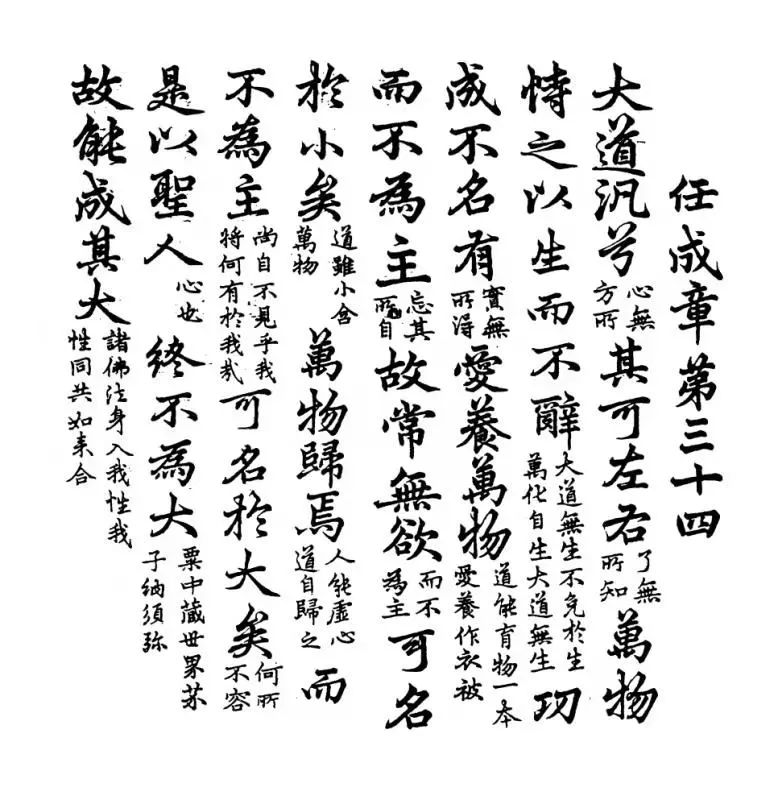 任成章第三十四
大道汎兮心無方所其可左右了無所知萬物
恃之以生而不辭大道無生不免於生萬化自生大道無生功
成不名有實無所得愛養萬物道能育物一本愛養作衣被
而不為主忘其所自故常無欲而不為主可名
於小矣道雖小含萬物萬物歸焉人能虛心道自歸之而
不為主尚自不見乎我將何有於我哉可名於大矣何所不容
是以聖人心也終不為大粟中藏世界芥子納須弥
故能成其大諸佛法身入我性我性同共如来合